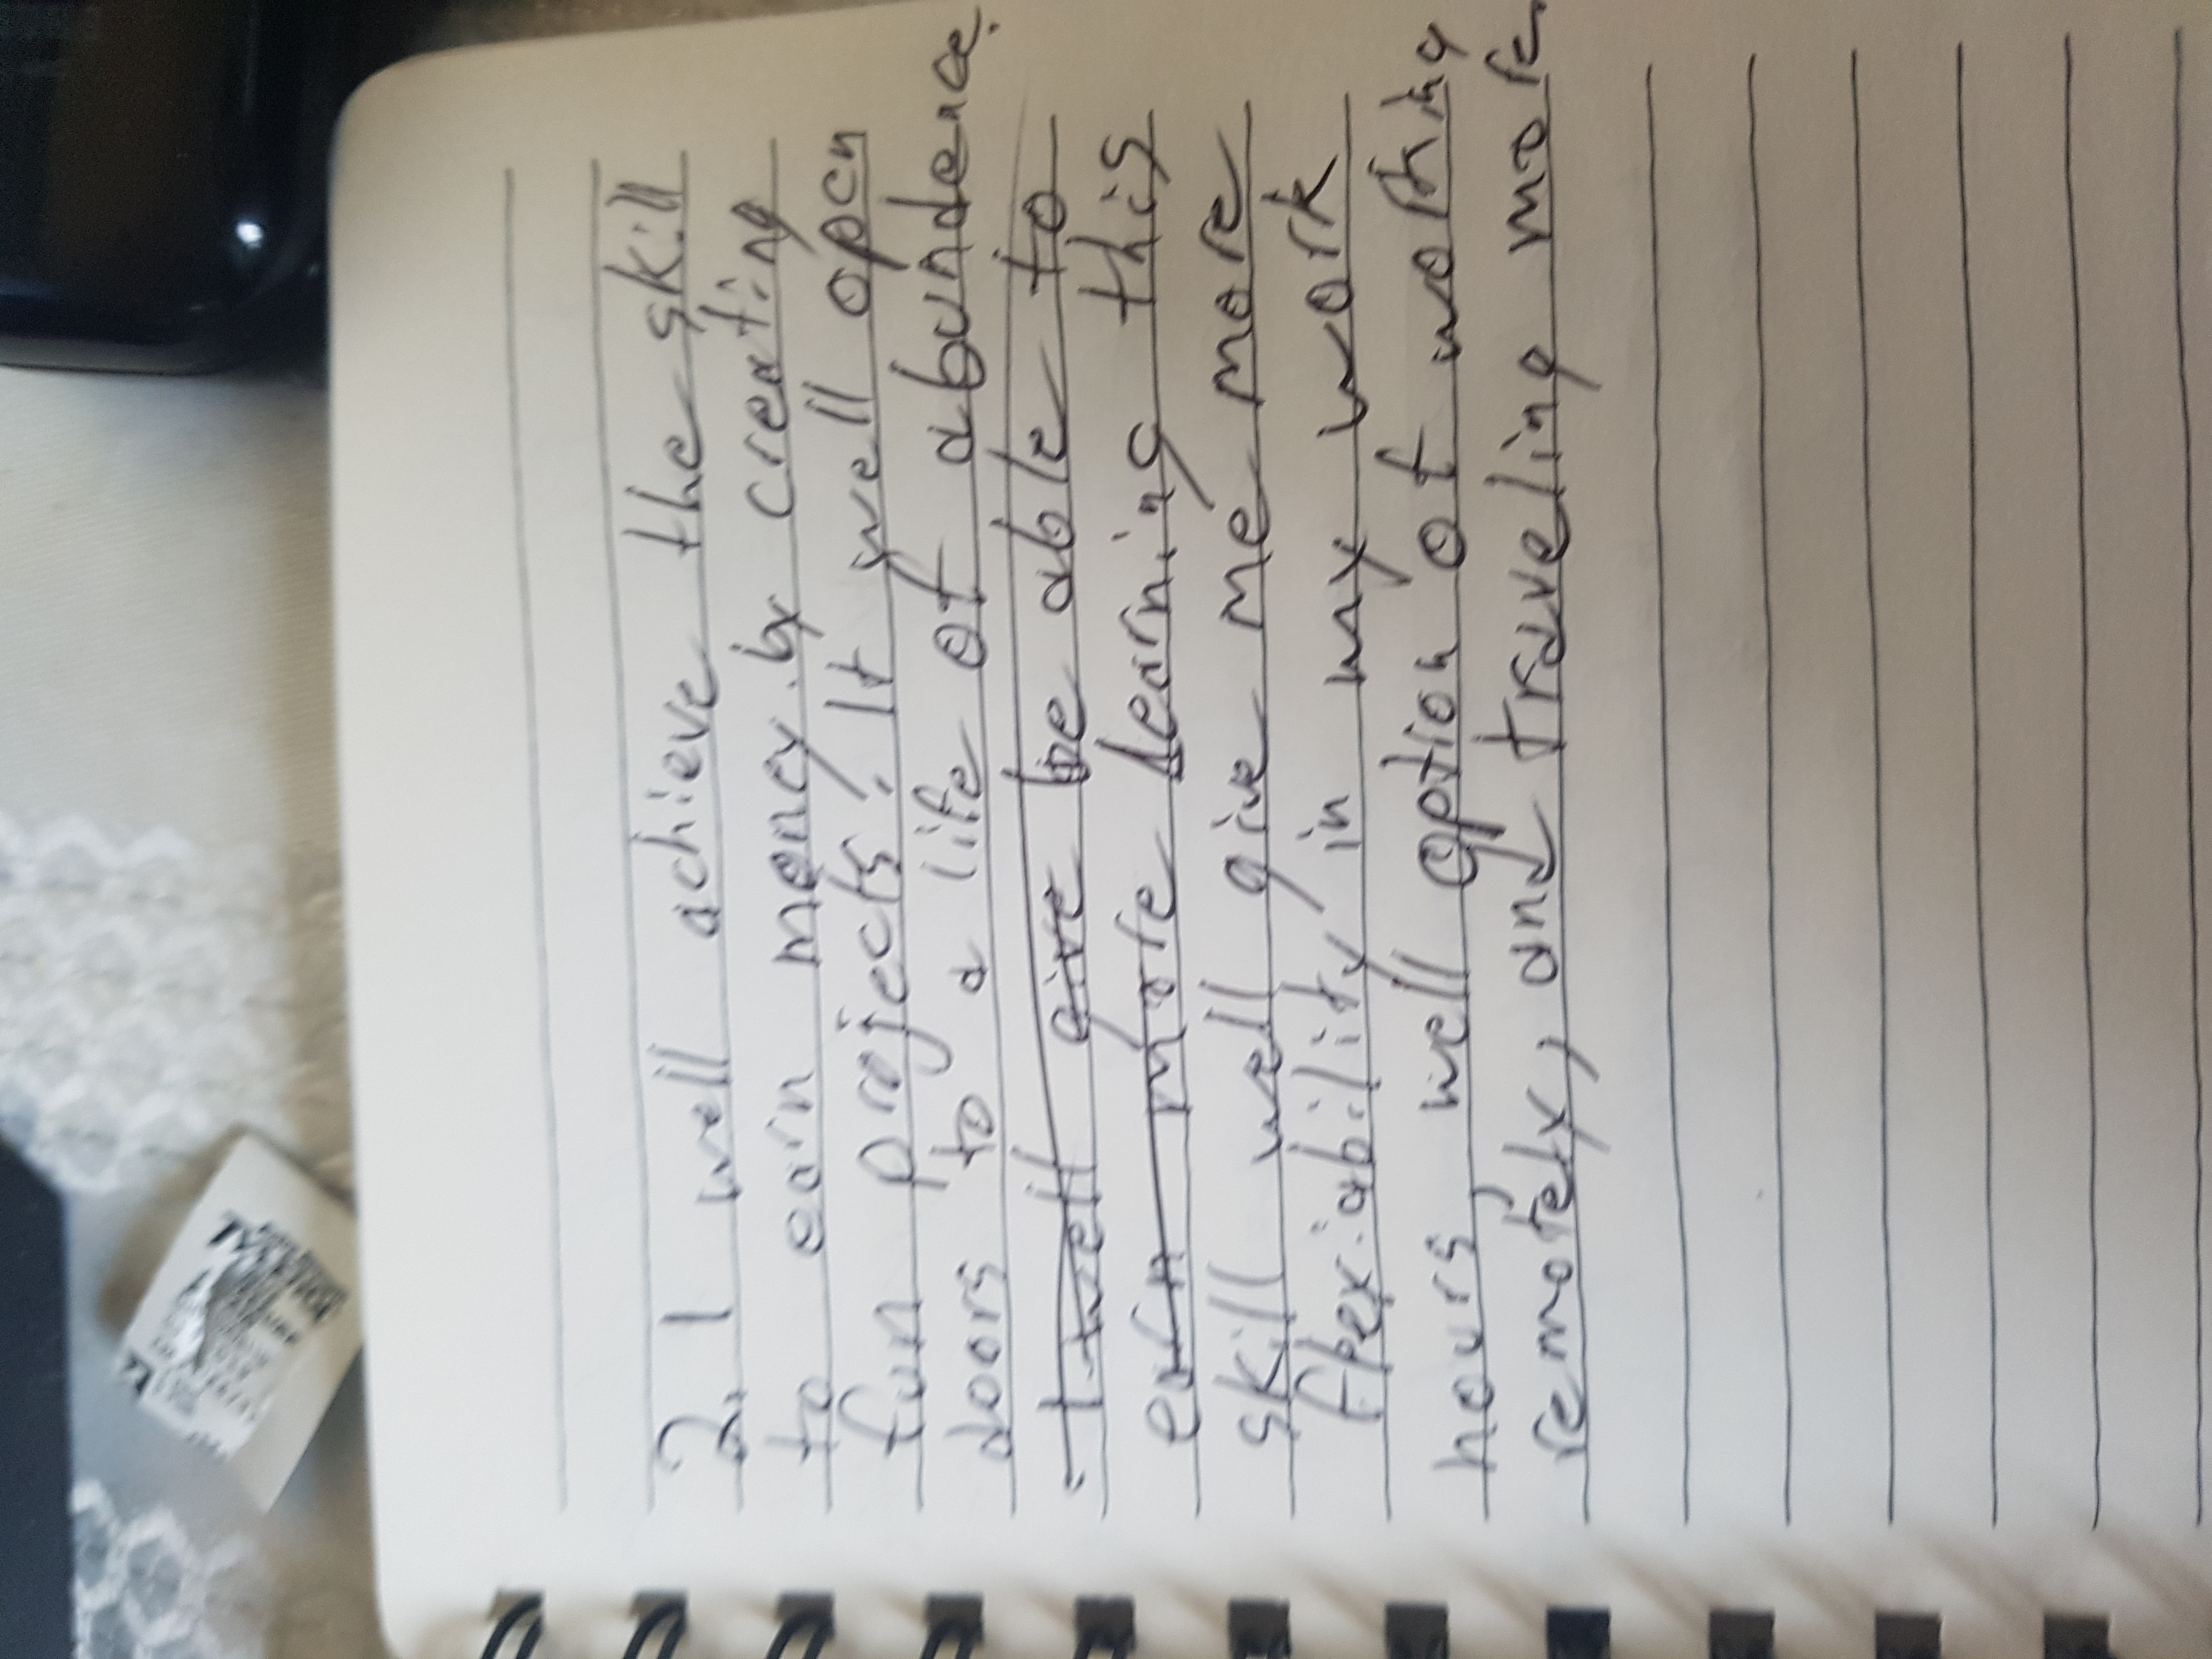 2. I well achieve the skill
to earn money. by creating
fun projects! It well open
doors to a life of abundence.
I well give be able to
earn more learning this
skill well give me more
flexiability in my work
hours, well option of working
remotely, and traveling more.